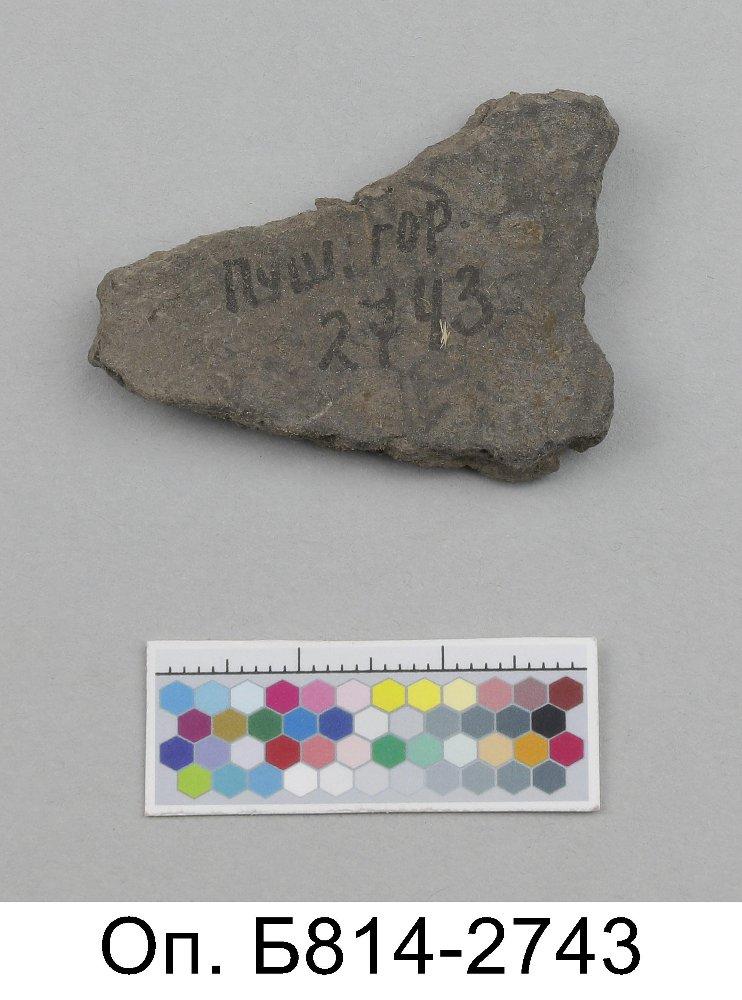 пуш. гор.
2743
Оп. Б814-2743